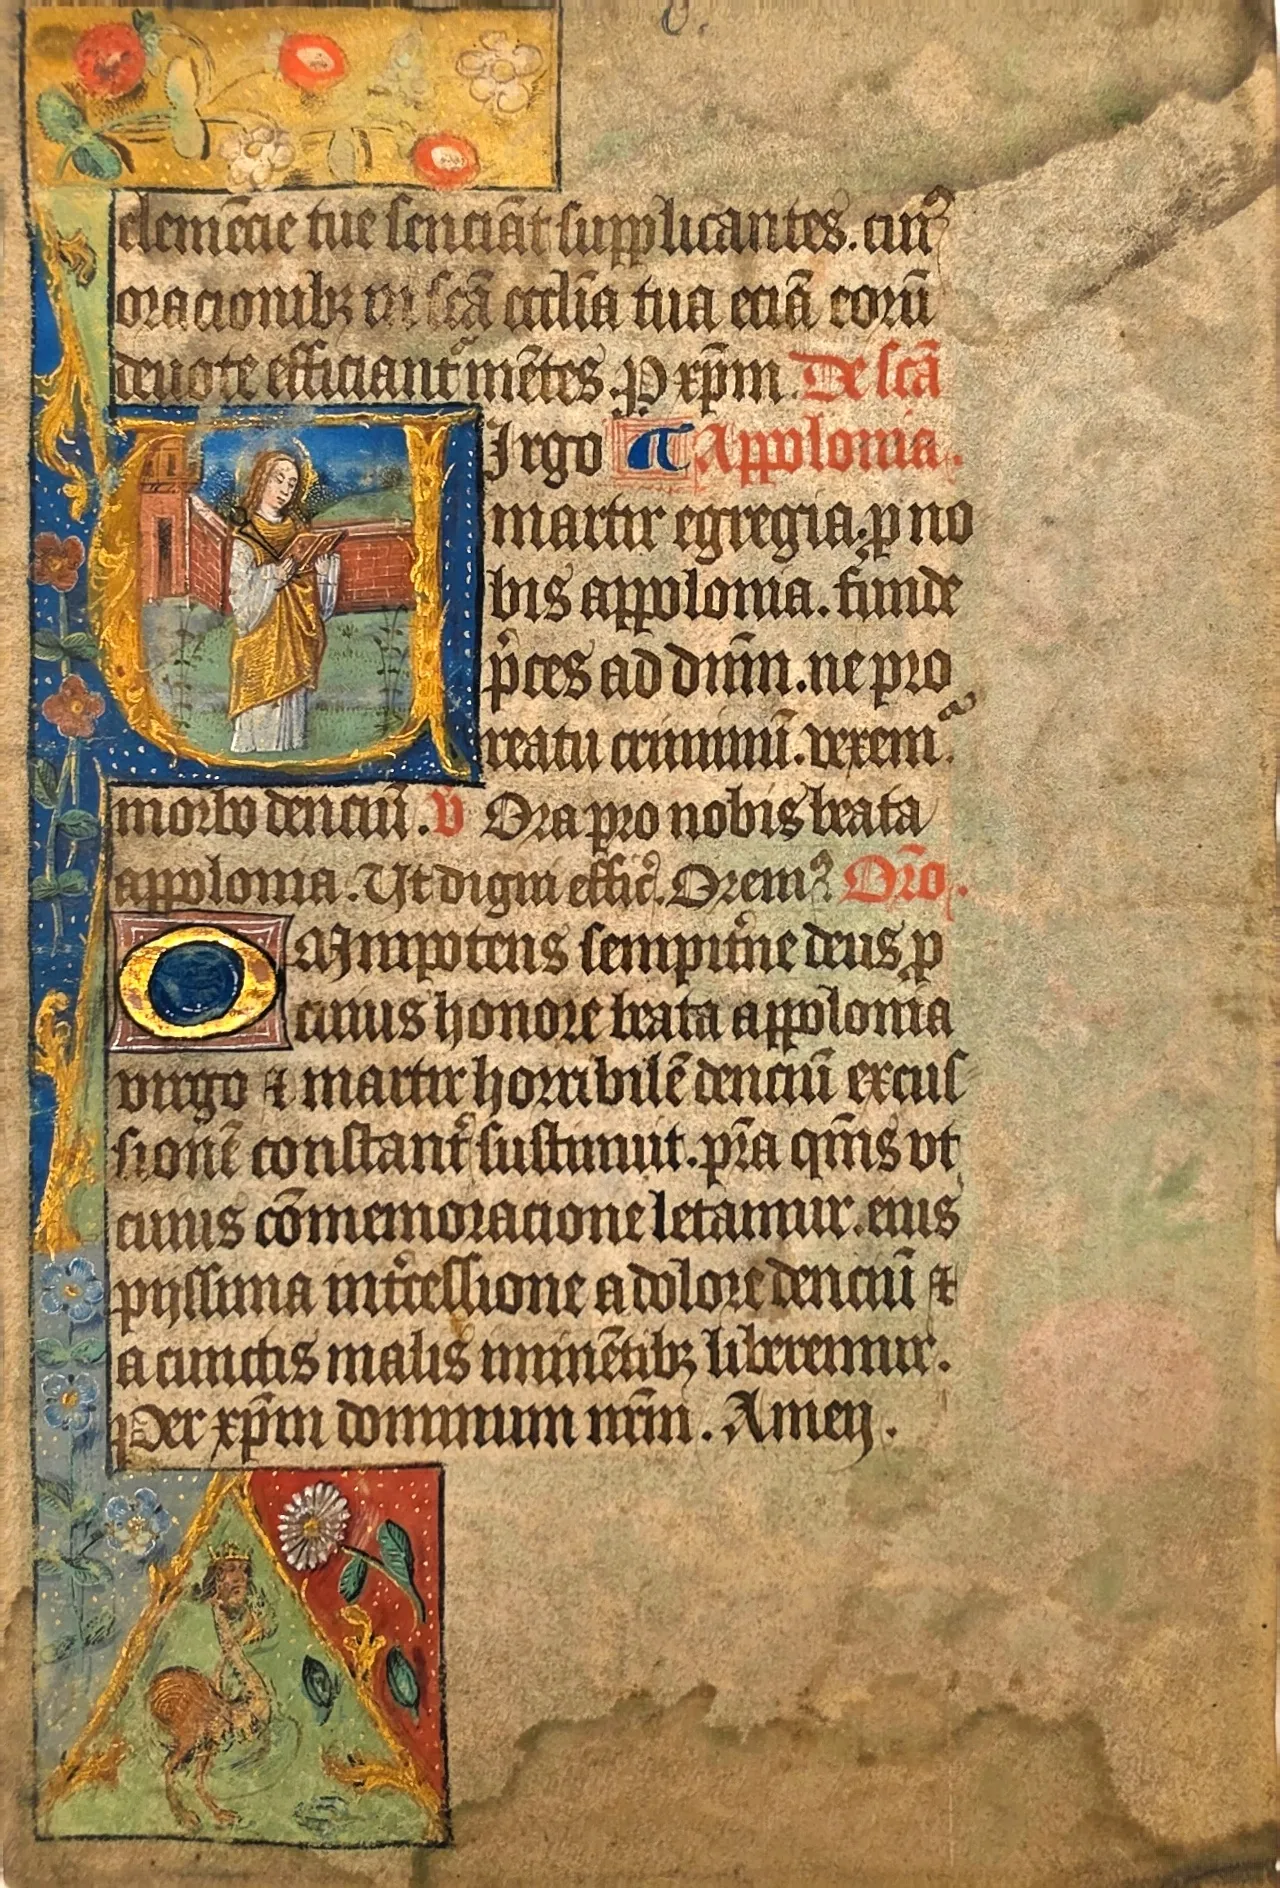 clemẽcie tue senciãt supplicantes. cũ
oracionibꝫ in scã ecclĩa tua eciã eorũ
deuote efficiant᷑ mẽtes. p xp̃m. De scã
Virgo a Appolonia.
martir egregia. p no
bis appolonia. funde
p̃ces ad dñm. ne pro
reatu criminũ. vexem᷑
morbo denciũ. v̄ Ora pro nobis beata
appolonia. Ut digni effic̃. Orem᷒ Oro̅.
OMnipotens sempit̃ne deus p
cuius honore beata appolonia
virgo ⁊ martir horribilẽ denciũ excus
sionẽ constant̃ sustinuit. pr̃a qm̃s vt
cuius cõmemoracione letamur. eius
pijssima int̃cessione a dolore denciũ ⁊
a cunctis malis iminẽtibꝫ liberemur.
Per xp̃m dominum nr̃m. Amen.